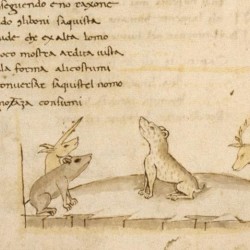 seguendo eno raxone
do gliboni saquista
ude che exalta lomo
oco mostra ardita vista
la forma alicostumi
conversar saquistel nomo
consumi